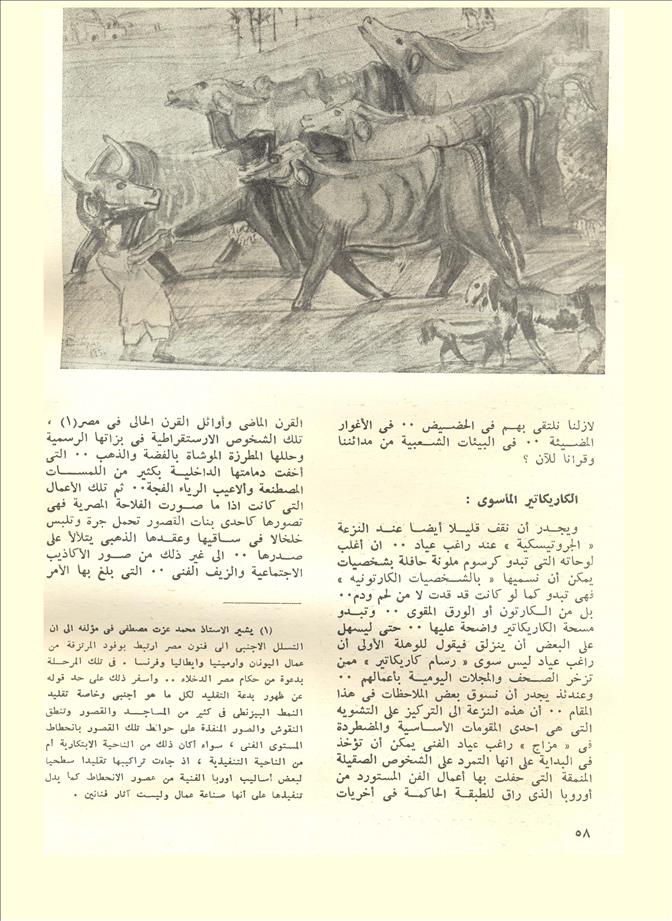 لازلنا نلتقى بهم فى الحضيض ٠٠ فى الأغوار
المضيئة ٠٠ فى البيئات الشعبية من مدائننا
وقرانا للآن ؟
الكاريكاتير المأسوى :
ويجدر أن نقف قليلا أيضا عند النزعة
« الجروتيسكية » عند راغب عياد ٠٠ ان أغلب
لوحاته التى تبدو كرسوم ملونة حافلة بشخصيات
يمكن أن نسميها « بالشخصيات الكارتونيه »
فهى تبدو كما لو كانت قد قدت لا من لحم ودم٠٠
بل من الكارتون أو الورق المقوى ٠٠ وتبدو
مسحة الكاريكاتير واضحة عليها ٠٠ حتى ليسهل
على البعض أن ينزلق فيقول للوهلة الأولى أن
راغب عياد ليس سوى « رسام كاريكاتير » ممن
تزخر الصحف والمجلات اليومية بأعمالهم ٠٠
وعندئذ يجدر أن نسوق بعض الملاحظات فى هذا
المقام ٠٠ أن هذه النزعة الى التركيز على التشويه
التى هى احدى المقومات الأساسية والمضطردة
فى « مزاج » راغب عياد الفنى يمكن أن تؤخذ
فى البداية على انها التمرد على الشخوص الصقيلة
المنمقة التى حفلت بها أعمال الفن المستورد من
أوروبا الذى راق للطبقة الحاكمة فى أخريات
القرن الماضى وأوائل القرن الحالى فى مصر(١) ،
تلك الشخوص الارستقراطية فى بزاتها الرسمية
وحللها المطرزة الموشاة بالفضة والذهب ٠٠ التى
أخفت دمامتها الداخلية بكثير من اللمسات
المصطنعة وألاعيب الرياء الفجة٠٠ ثم تلك الأعمال
التى كانت اذا ما صورت الفلاحة المصرية فهى
تصورها كاحدى بنات القصور تحمل جرة وتلبس
خلخالا فى ساقيها وعقدها الذهبى يتلألأ على
صدرها ٠٠ الى غير ذلك من صور الأكاذيب
الاجتماعية والزيف الفنى ٠٠ التى بلغ بها الأمر
(١) يشير الاستاذ محمد عزت مصطفى فى مؤلفه الى ان
التسلل الاجنبى الى فنون مصر ارتبط بوفود المرتزقة من
عمال اليونان وارمينيا وايطاليا وفرنسا . فى تلك المرحلة
بدعوة من حكام مصر الدخلاء .. وأسفر ذلك على حد قوله
عن ظهور بدعة التقليد لكل ما هو أجنبى وخاصة تقليد
النمط البيزنطى فى كثير من المساجد والقصور وتنطق
النقوش والصور المنفذة على حوائط تلك القصور بانحطاط
المستوى الفنى ، سواء أكان ذلك من الناحية الابتكارية أم
من الناحية التنفيذية ، اذ جاءت تراكيبها تقليدا سطحيا
لبعض أساليب اوربا الفنية من عصور الانحطاط كما يدل
تنفيذها على أنها صناعة عمال وليست آثار فنانين .
٥٨